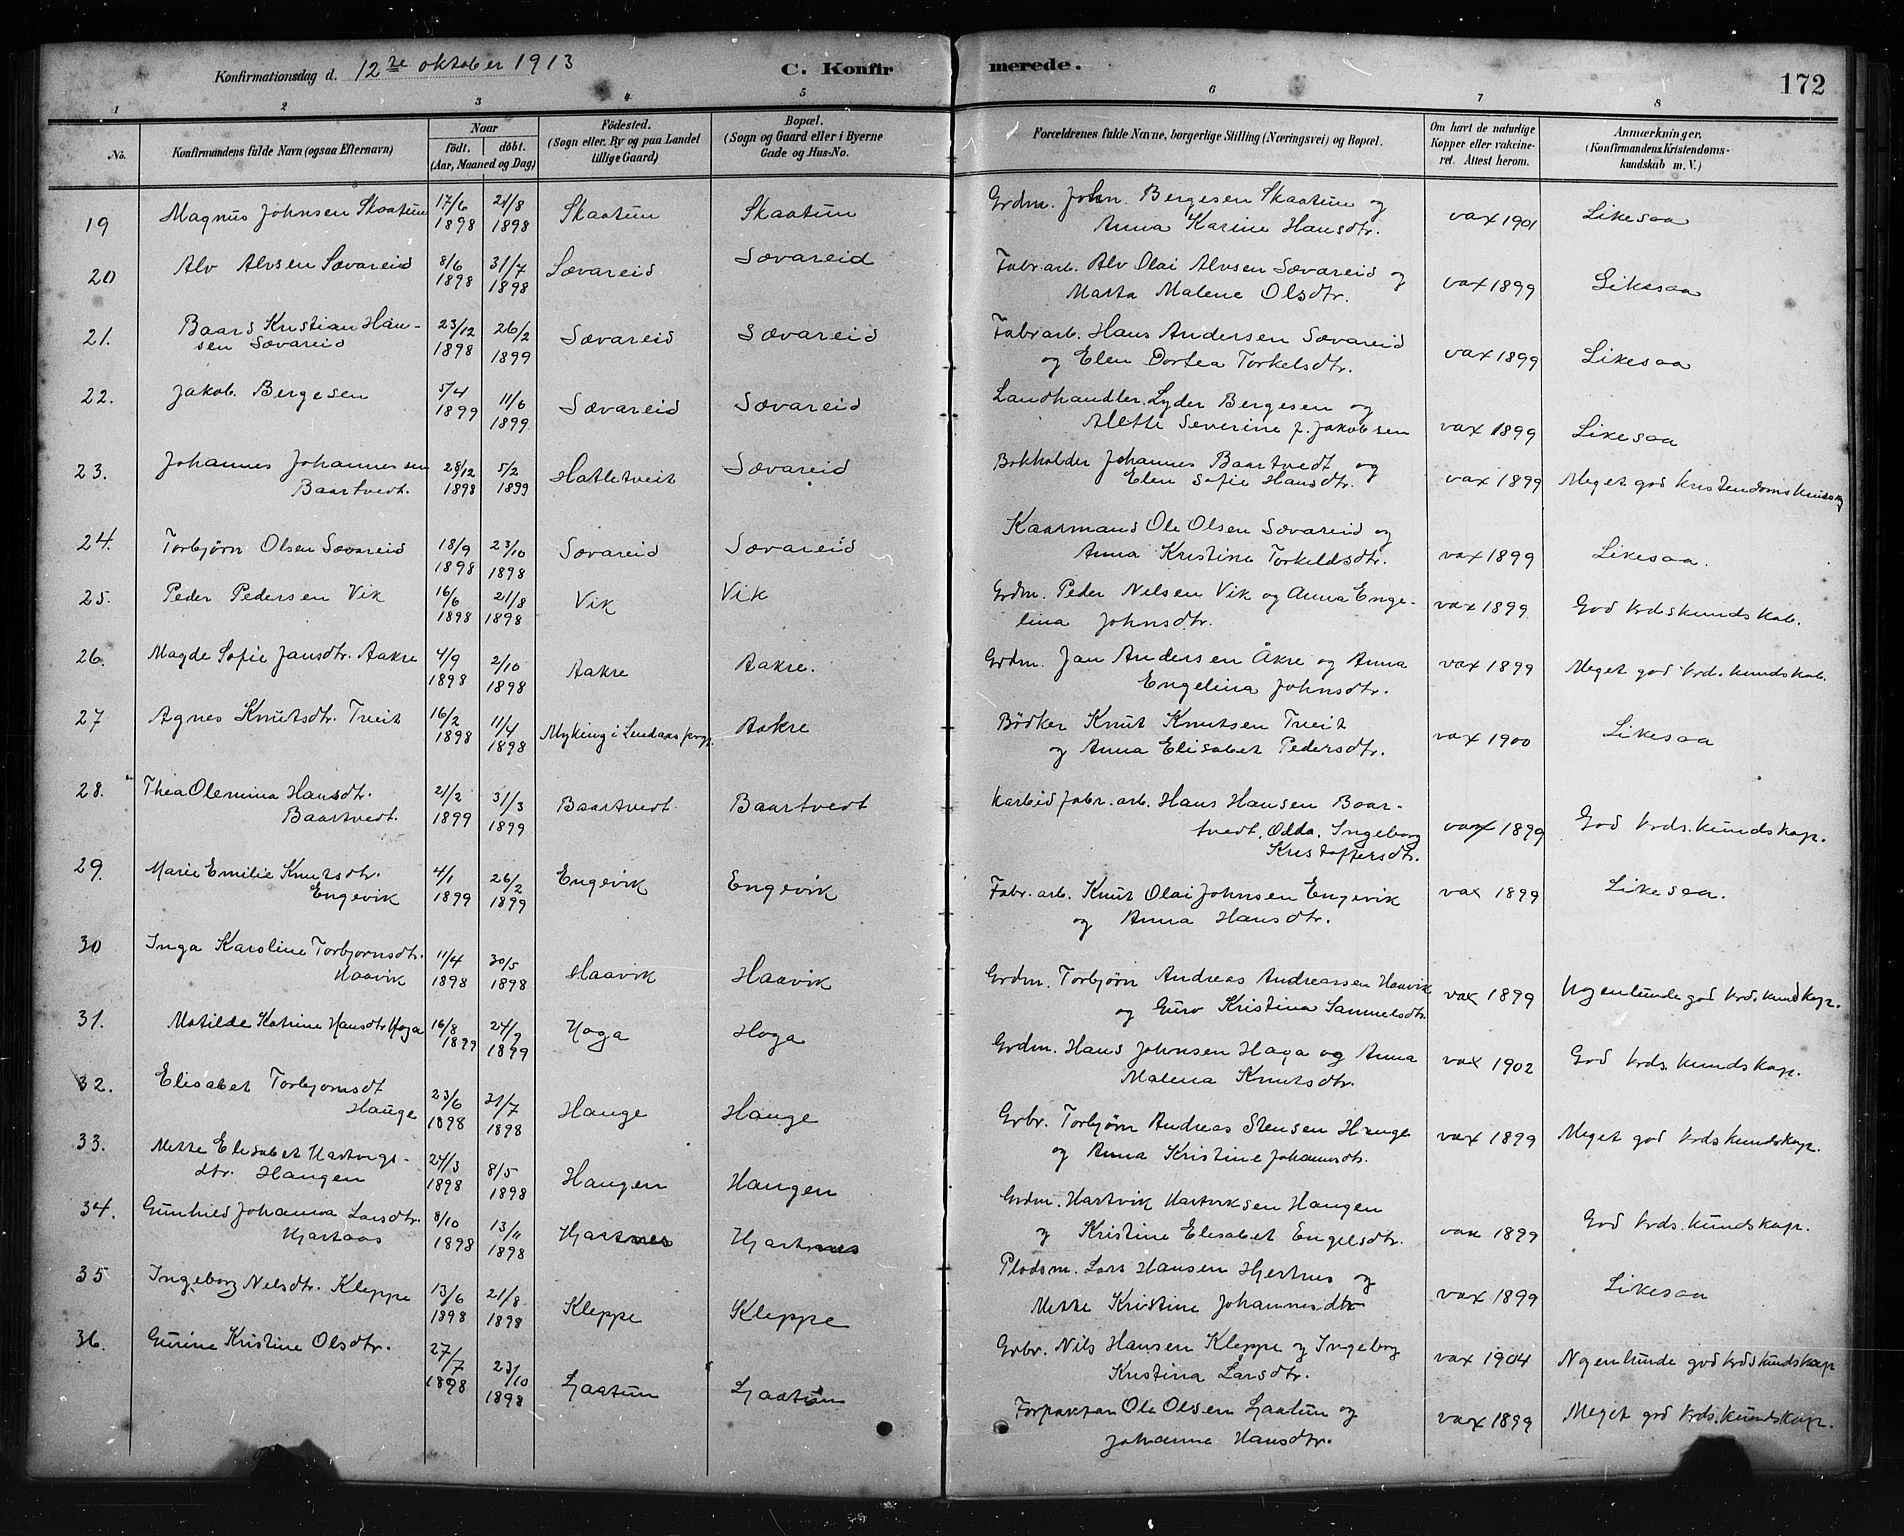 Konfirmationsdag d. 12te oktober 1913
C. Konfirmerede.
172
1 2 3 4 5 6 7 8
No.
Konfirmandens fulde Navn (ogsaa Efternavn)
Naar
födt. döbt.
(Aar, Maaned og Dag)
Födested.
(Sogn eller By og paa Landet
tillige Gaard)
Bopæl.
(Sogn og Gaard eller i Byerne
Gade og Hus-No.
Forældrenes fulde Navne, borgerlige Stilling (Næringsvei) og Bopæl.
Om havt de naturlige
Kopper eller vakcine-
ret. Attest herom.
Anmærkninger.
(Konfirmandens Kristendoms-
kundskab m. V.)
19 Magnus Johnsen Skaatun 17/6 1898 21/8 1898 Skaatun Skaatun Grdm. John Bergesen Skaatun og
Anna Karine Hansdtr. vax 1901 Likesaa
20 Alv Alvsen Sævareid 8/6 1898 31/7 1898 Sævareid Sævareid Fabr. arb. Alv Olai Alvsen Sævareid og
Marta Malene Olsdtr. vax 1899 Likesaa
21. Baars Kristian Han-
sen Sævareid 23/12 1898 26/2 1899 Sævareid Sævareid Fabr arb. Hans Andersen Sævareid
og Elen Dortea Torkelsdtr. vax 1899 Likesaa
22. Jakob Bergesen 5/4 1899 11/6 1899 Sævareid Sævareid Landhandler Lyder Bergesen og
Alette Severine f. Jakobsen vax 1899 Likesaa
23. Johannes Johannessen
Baartvedt. 28/12 1898 5/2 1899 Hatletveit Sævareid Bokholder Johannes Baartvedt og
Elen Sofie Hansdtr. vax 1899 Meget god Kristendomskundsk
24. Torbjørn Olsen Sævareid 18/9 1898 23/10 1898 Sævareid Sævareid Kaarmand Ole Olsen Sævareid og
Anna Kristine Torkeldsdtr. vax 1899 Likesaa.
25. Peder Pedersen Vik 16/6 1898 21/8 1898 Vik Vik Grdm. Peder Nelsen Vik og Anna Enge-
lina Johnsdtr. vax 1899 God krdskundskab.
26. Magde Sofie Jansdtr. Aakre 4/9 1898 2/10 1898 Aakre Aakre. Grdm. Jan Andersen Åkre og Anna
Engelina Johnsdtr. vax 1899 Meget god krds. kundskab.
27 Agnes Knutsdtr. Tveit 16/2 1898 11/4 1898 Myking i Lindaas prgj. Aakre Bödker Knut Knutsen Tveit
og Anna Elisabet Pedersdtr. vax 1900 Likesaa
28. Thea Olemina Hansdtr.
Baartvedt. 21/2 1899 31/3 1899 Baartvedt Baartvedt Karbid fabr. arb. Hans Hansen Baar-
tvedt, Odda, Ingeborg
Kristoffersdtr. vax 1899 God krds. kundskap.
29. Marie Emilie Knutsdtr.
Engevik 4/1 1899 26/2 1899 Engevik Engevik Fabr. arb. Knut Olai Johnsen Engevik
og Anna Hansdtr. vax 1899 Likesaa.
30 Inga Karoline Torbjornsdtr.
Haavik 11/4 1898 30/5 1898 Haavik Haavik Grdm. Torbjørn Andreas Andreassen Haavik
og Guro Kristina Samuelsdtr. vax 1899 Nogenlunde god krds. kundskap.
31. Matilde Katrine Hansdtr Hoga 16/8 1899 24/9 1899 Hoga Hoga Grdm. Hans Johnsen Haga og Anna
Malena Knutsdtr. vax 1902 God krds. kundskap.
32. Elisabet Torbjornsdt
Hauge 23/6 1898 31/7 1898 Hauge Hauge Grbr. Torbjørn Andreas Stensen Hauge
og Anna Kristine Johannesdtr. vax 1899 Meget god krdskundskap.
33. Mette Elisabet Hartvigs-
dtr. Haugen 24/3 1898 8/5 1898 Haugen Haugen Grdm. Hartvik Hartviksen Haugen
og Kristine Elisabet Engelsdtr. vax 1899 God krds. kundskap.
34. Gunhild Johanna Larsdtr.
Hjartaas 8/10 1898 13/11 1898 Hjartnes Hjartnes Pladsm. Lars Hansen Hjertnes og
Mette Kristine Johannesdtr vax 1899 Likesaa
35 Ingeborg Nelsdtr. Kleppe 13/6 1898 21/8 1898 Kleppe Kleppe Grbr. Nils Hansen Kleppe og Ingeborg
Kristina Larsdtr. vax 1904 Nogenlunde god krdskundskap
36. Gurine Kristine Olsdtr. 27/7 1898 23/10 1898 Gaatun Gaatun Forpaktar Ole Olsen Gaatun og
Johanna Hansdtr. vax 1899 Meget god krds. kundskap.